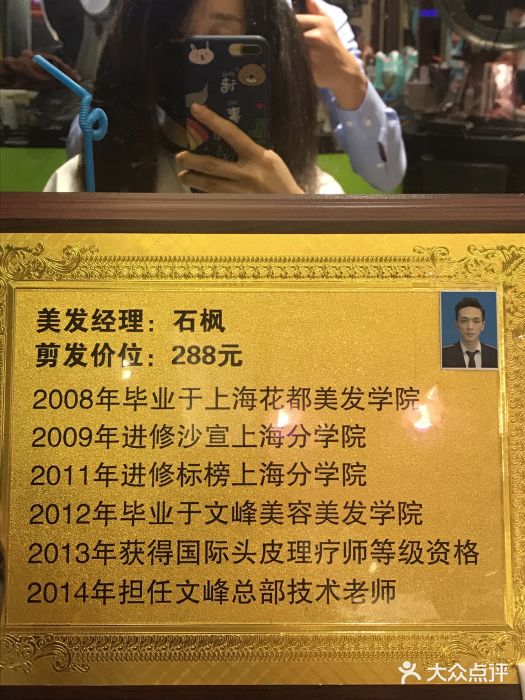 美发经理：石枫
剪发价位：288元
2008年毕业于上海花都美发学院
2009年进修沙宣上海分学院
2011年进修标榜上海分学院
2012年毕业于文峰美容美发学院
2013年获得国际头皮理疗师等级资格
2014年担任文峰总部技术老师
大众点评